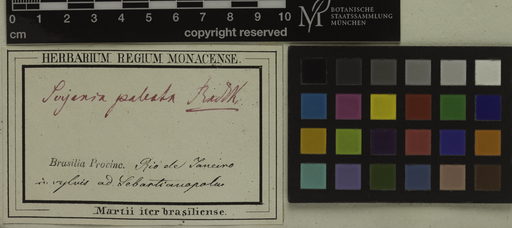 0 1 2 3 4 5 6 7 8 9 10
cm
copyright reserved
BOTANISCHE
STAATSSAMMLUNG
MÜNCHEN
HERBARIUM REGIUM MONACENSE.
paleata Raddi
Brasilia Provinc. Rio de Janeiro
in sylvis ad Sebastianopolin
Martii iter brasiliense.